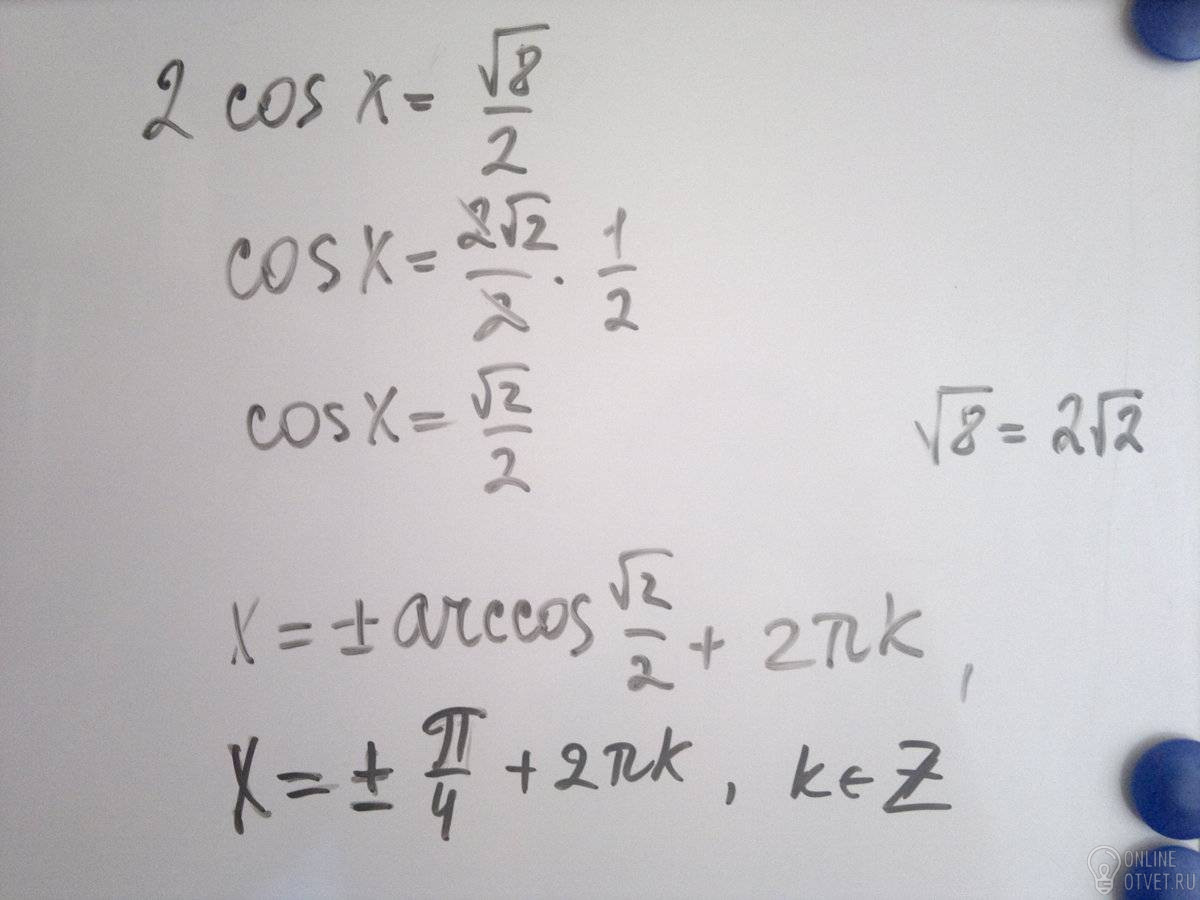 2 cos x = √8/2
cos x = 2√2/2 · 1/2
cos x = √2/2
√8 = 2√2
x = ± arccos √2/2 + 2πk,
x = ± π/4 + 2πk, k ∈ Z
ONLINE
OTVET.RU